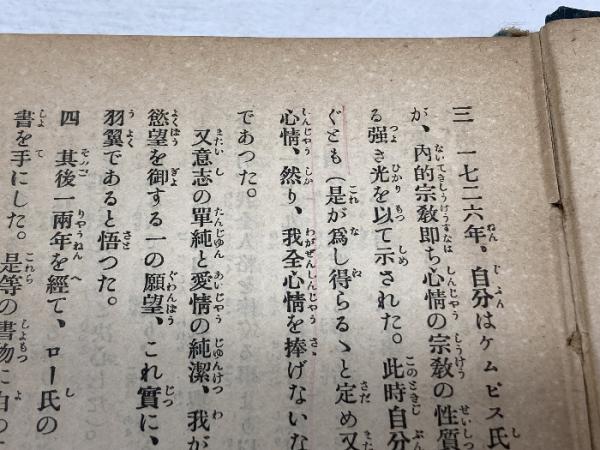 三 一七二六年、自分はケムピス氏
が、内的宗教即ち心情の宗教の性質
る强き光を以て示された。此時自分
ぐとも（是が爲し得らるゝと定め又
心情、然り、我全心情を捧げないな
であつた。
又意志の單純と愛情の純潔、我が
慾望を御する一の願望、これ實に、
羽翼であると悟つた。
四 其後一兩年を經て、ロー氏の
書を手にした。是等の書物に由つ